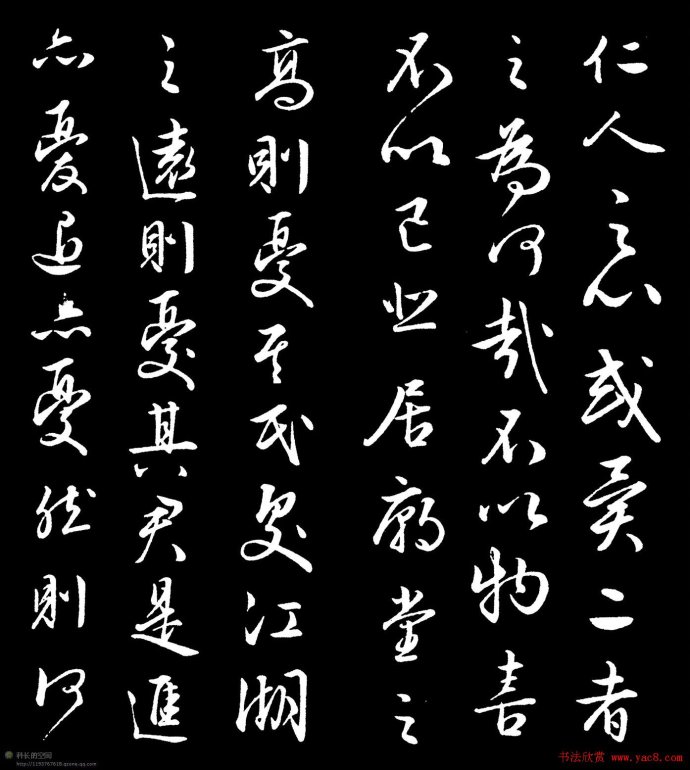 仁人之心或異二者
之為何哉不以物喜
不以己悲居廟堂之
高則憂其民處江湖
之遠則憂其君是進
亦憂退亦憂然則何
科长的空间
http://1193767618.qzone.qq.com
书法欣赏 www.yac8.com